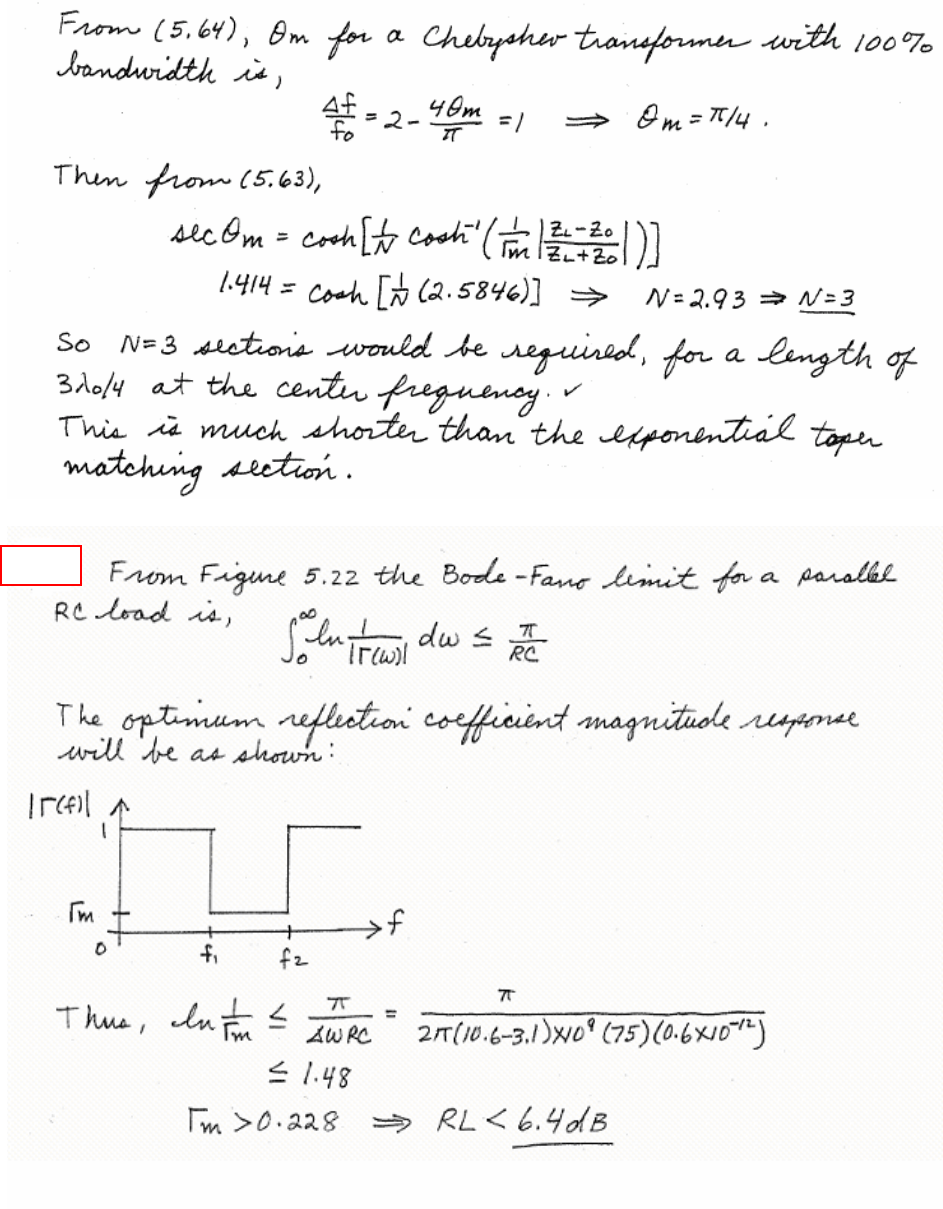 From (5.64), θm for a Chebyshev transformer with 100%
bandwidth is,
Δf/f₀ = 2 - 4θm/π = 1 ⟹ θm = π/4 .
Then from (5.63),
sec θm = cosh[1/N cosh⁻¹(1/Γm |ZL-Z0/ZL+Z0|)]
1.414 = cosh [1/N (2.5846)] ⟹ N=2.93 ⟹ N=3
So N=3 sections would be required, for a length of
3λ₀/4 at the center frequency. ✓
This is much shorter than the exponential taper
matching section.
From Figure 5.22 the Bode-Fano limit for a parallel
RC load is,
∫₀^∞ ln 1/|Γ(ω)| dω ≤ π/RC
The optimum reflection coefficient magnitude response
will be as shown:
|Γ(f)|
1
Γm
f
0
f₁ f₂
Thus, ln 1/Γm ≤ π/ΔωRC = π/2π(10.6-3.1)×10⁹ (75)(0.6×10⁻¹²)
≤ 1.48
Γm > 0.228 ⟹ RL < 6.4dB